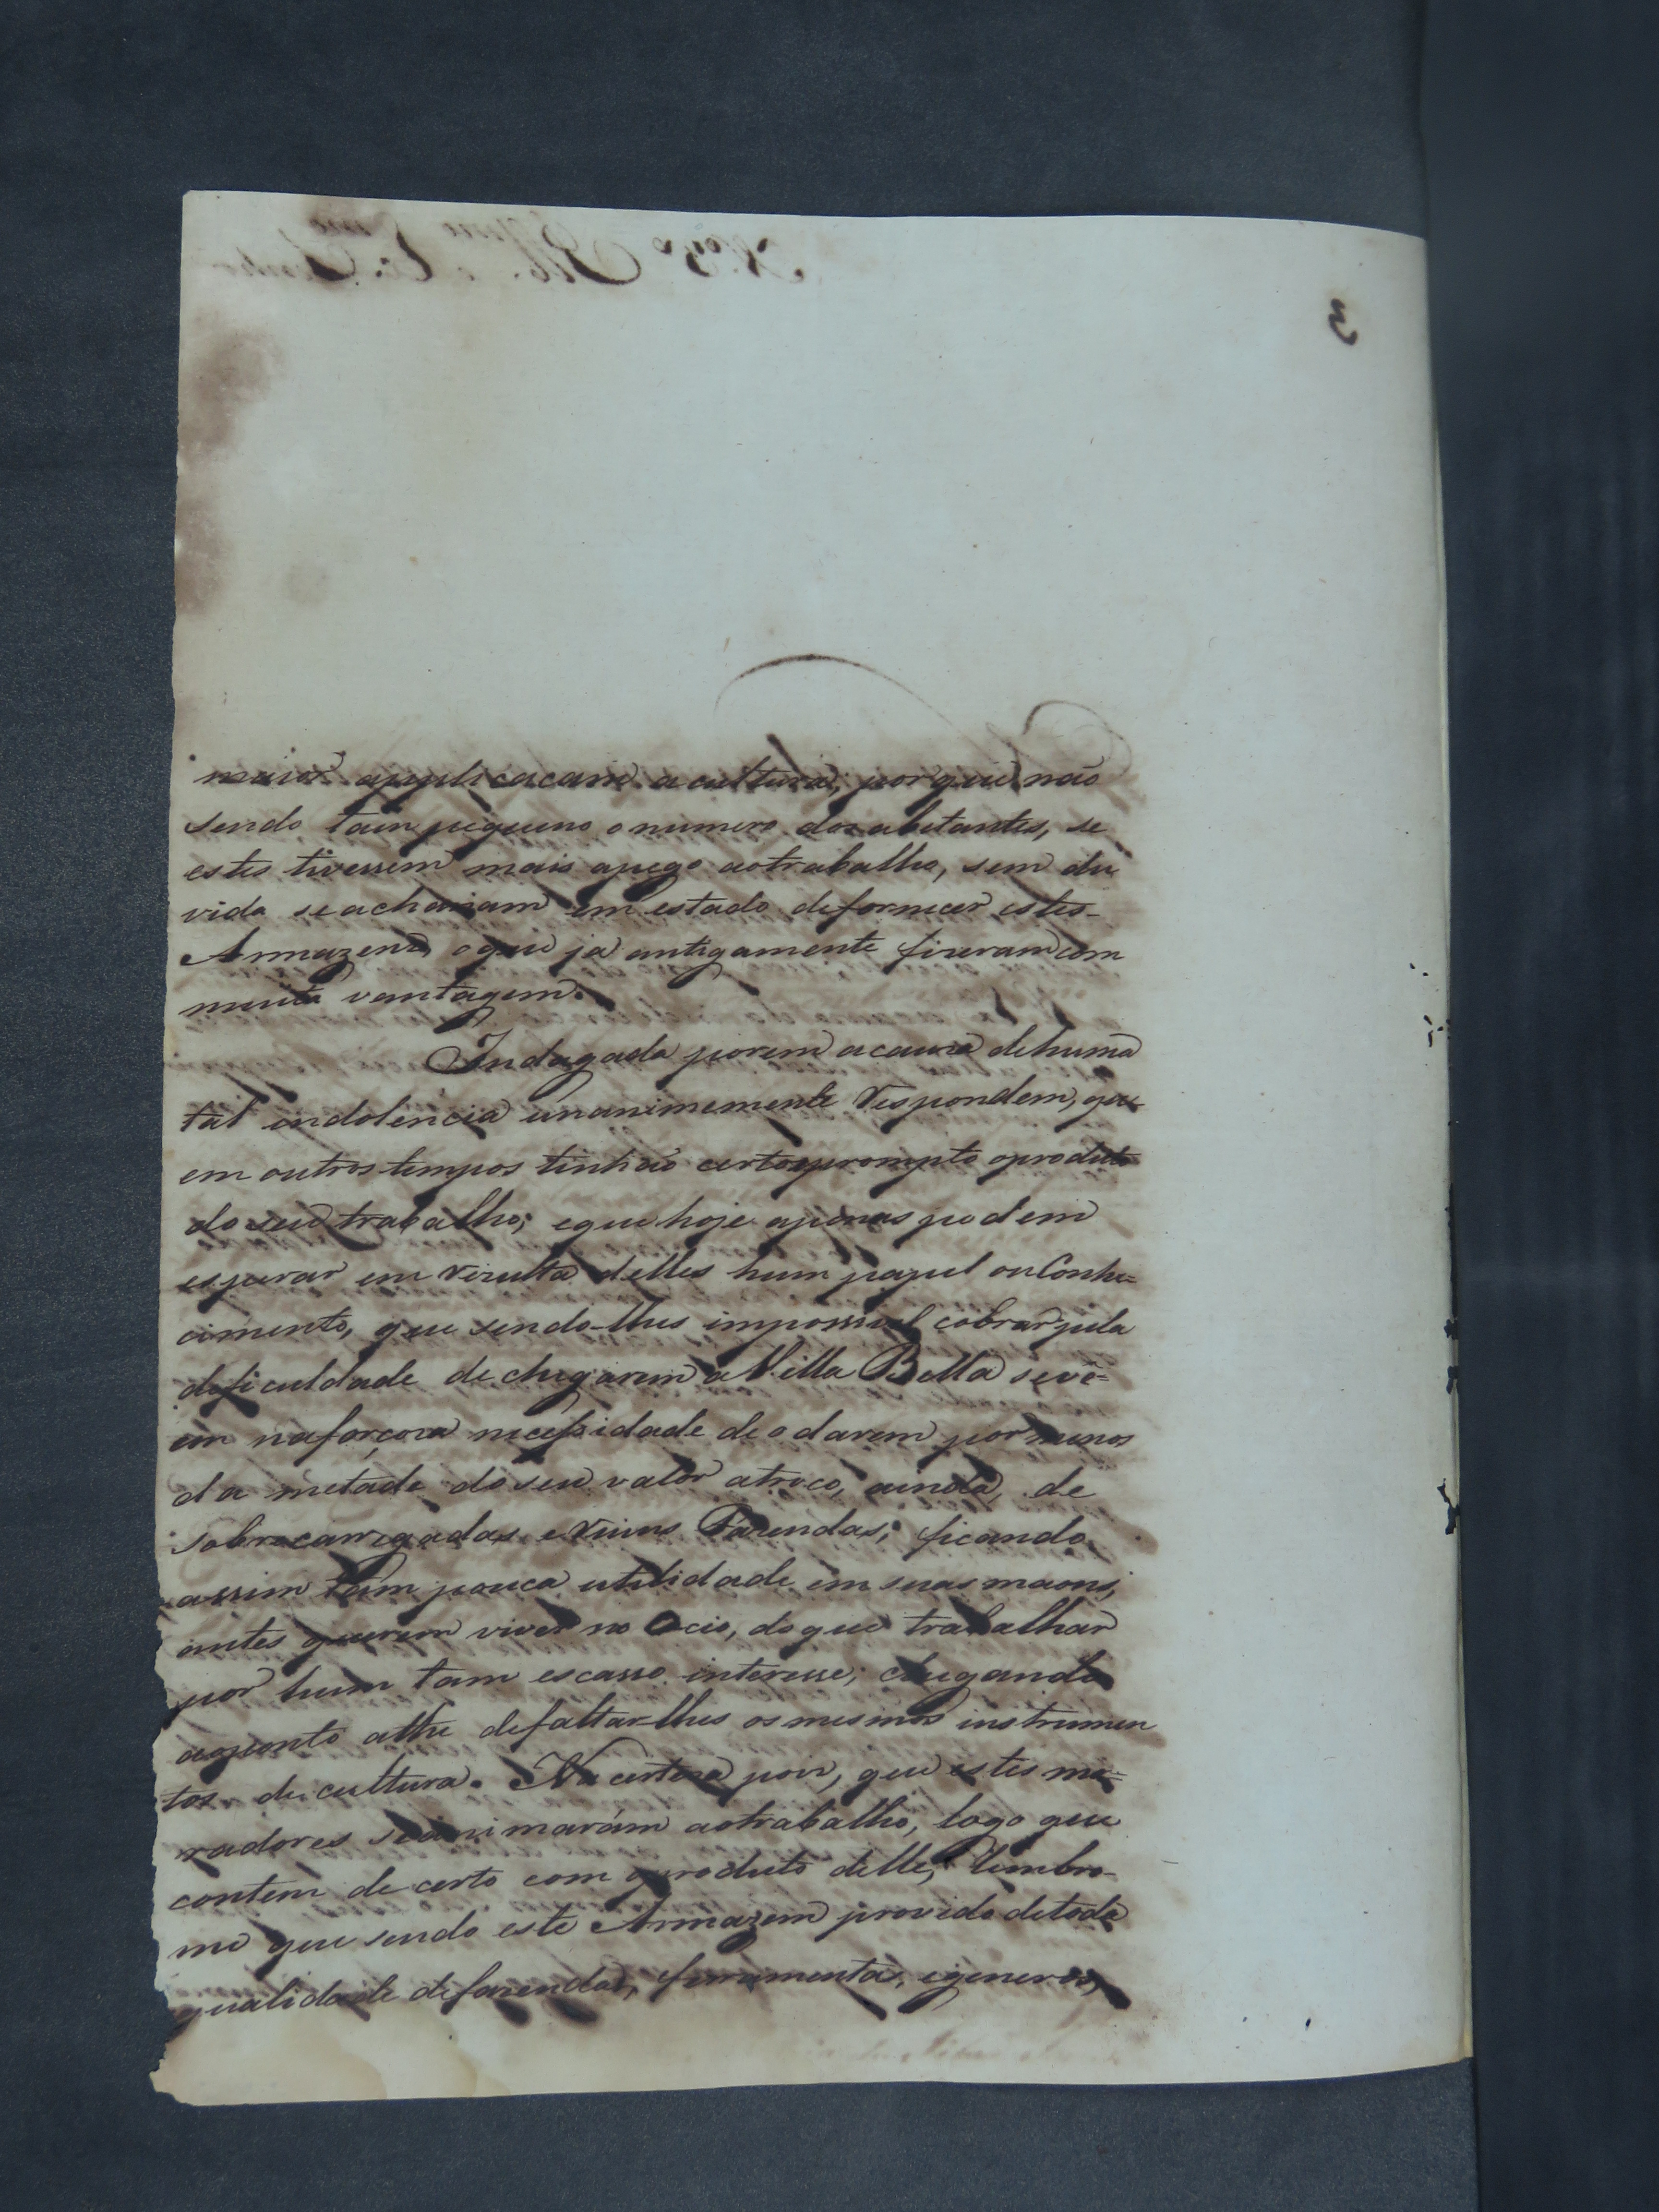 maior applicacam a cultura, porque não
sendo tam pequeno o numero dos abitantes, se
estes tivessem mais apego aotrabalho, sem du
vida seachariam em estado defornecer estes
Armazens, oque ja antigamente fizeram com
muita vantagem.
Indagada porem acauza dehuma
tal indolencia unanimemente Respondem, que
em outros tempos tinhaõ certoeprompto oproduto
do seu trabalho; eque hoje apenas podem
esperar em Rezulta delles hum papel ou Conhe=
cimento, que sendo-lhes impossivel cobrar pela
deficuldade de chegarem a Villa Bella sevê=
em naforçoza necessidade de o darem por menos
da metade do seu valor atroco, ainda, de
sobrecarregadas e Ruins Fazendas; ficando
assim tam pouca utilidade em suas maons,
antes querem viver no Ocio, do que trabalhar
por hum tam escasso interesse; chegando
aoponto athe defaltar-lhes os mesmos instrumen
tos de cultura. Na certeza pois, que estes mo=
radores seanimarám aotrabalho, logo que
contem de certo com oproduto delle, Lembro-
me que sendo este Armazem provido detoda
qualidade defazendas, ferramenta, egeneros,